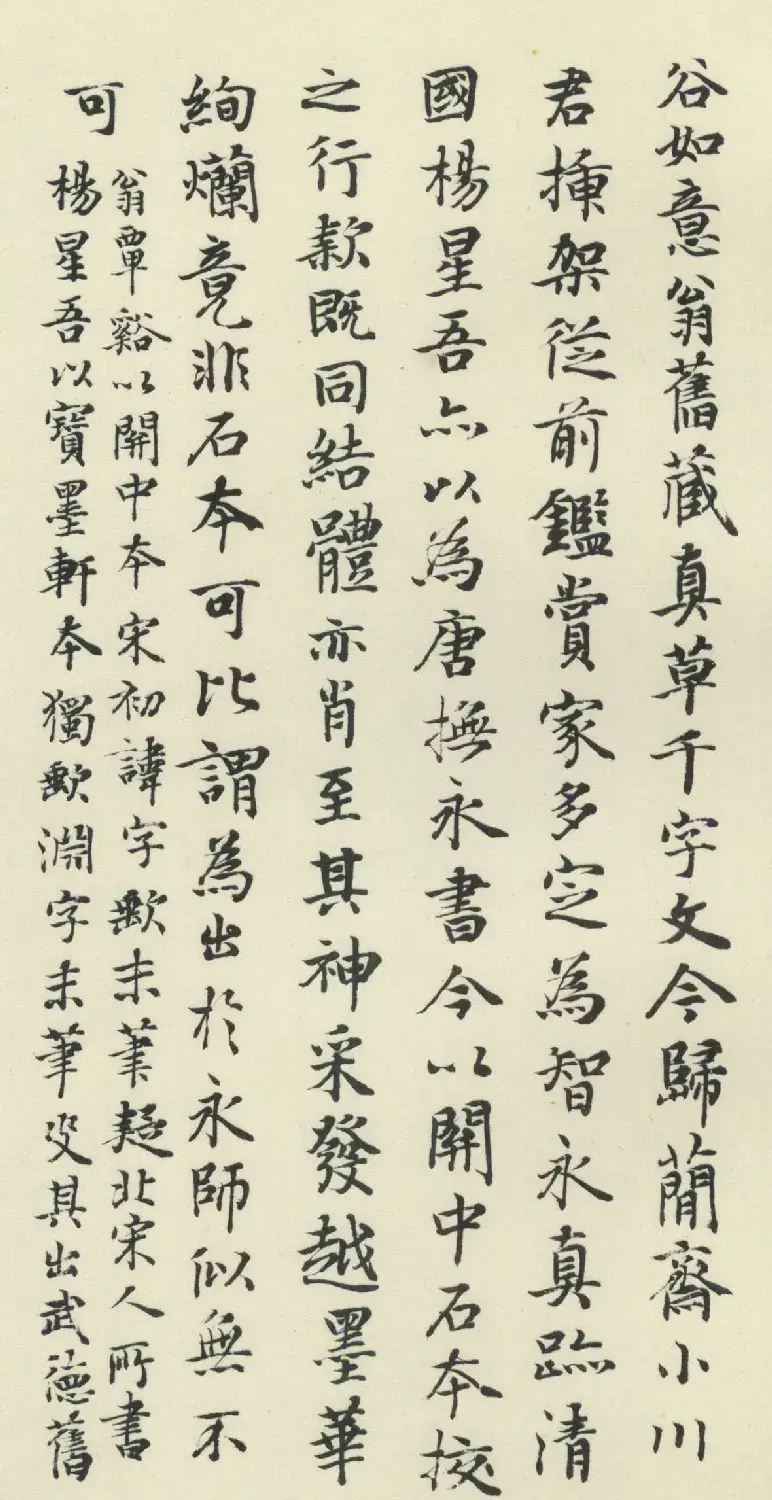 谷如意翁舊藏真草千字文今歸蕑齋小川
君插架從前鑑賞家多定為智永真跡清
國楊星吾亦以為唐撫永書今以關中石本挍
之行款既同結體亦肖至其神采發越墨華
絢爛竟非石本可比謂為出於永師似無不
可
翁覃谿以關中本宋初諱字缺末筆疑北宋人所書
楊星吾以寶墨軒本獨缺淵字末筆定其出武德舊